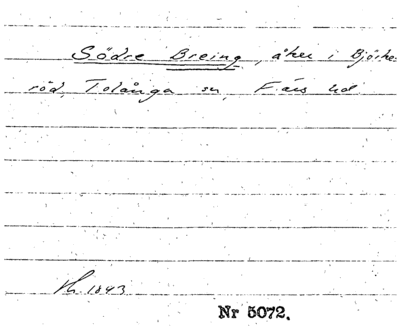 Södre Breing, åker i Björke-
röd, Tolånga sn, Färs hd
Nr 5072.